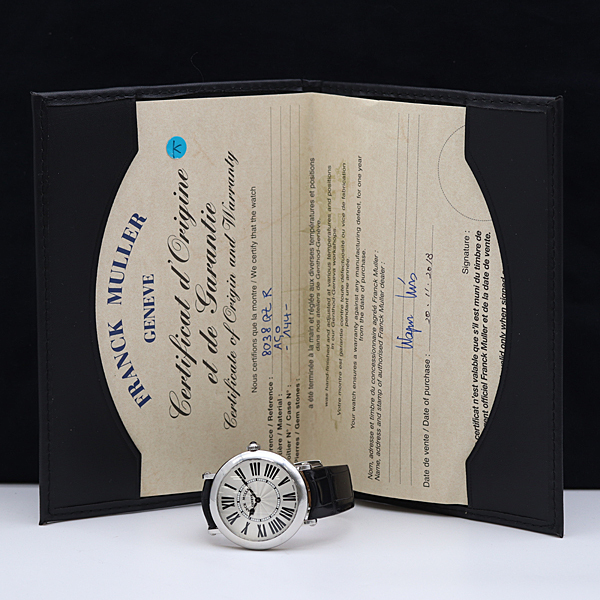 FRANCK MULLER
GENEVE
Certificat d'Origine
et de Garantie
Certificate of Origin and Warranty
Nous certifions que la montre / We certify that the watch
Reference : 8038 QZ R
Material :
Case N° : - 144 -
Pierres / Gem stones :
a été terminée à la main et réglée aux diverses températures et positions
dans nos ateliers de Genthod-Genève.
was hand-finished and adjusted at various temperatures and positions
in our Genthod-Geneva workshops.
Votre montre est garantie contre toute défectuosité ou vice de fabrication
pendant une année.
Your watch ensures a warranty against any manufacturing defect, for one year
from the date of purchase.
Nom, adresse et timbre du concessionnaire agréé Franck Muller :
Name, address and stamp of authorised Franck Muller dealer :
Date de vente / Date of purchase : 20.11.2018
Signature :
certificat n'est valable que s'il est muni du timbre de
officiel Franck Muller et de la date de vente.
valid only when signed